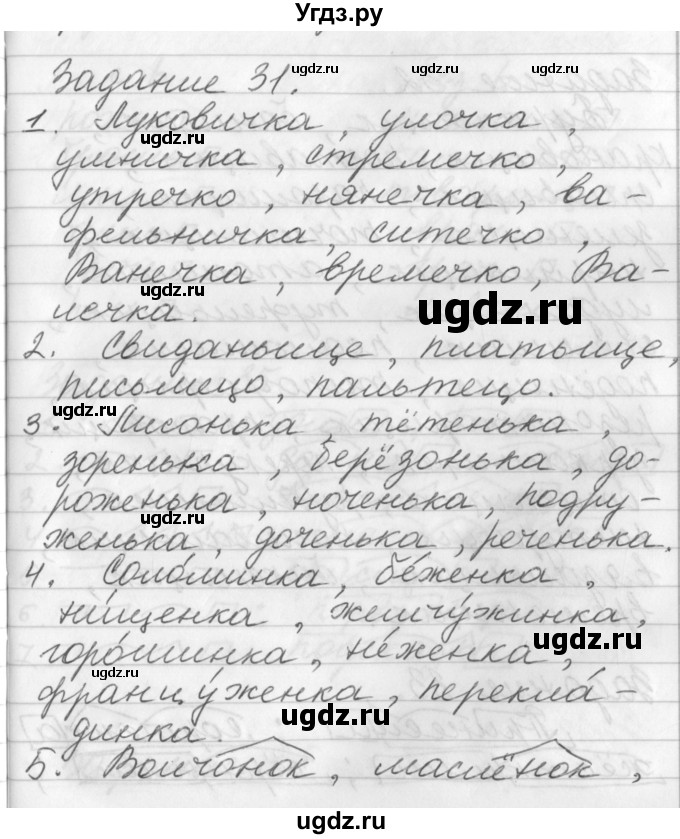 Угдз.ру
Задание 31.
ugdz.ru
ugdz.ru
1. Луковичка, улочка,
ugdz.ru
умничка, стремечко,
ugdz.ru
утречко, нянечка, ва-
фельничка, ситечко,
Ванечка, времечко, Ва-
ugdz.ru
ugdz.ru
лечка.
2. Свиданьице, платьице,
письмецо, пальтецо.
ugdz.ru
3. Лисонька, тётенька,
ugdz.ru
зоренька, берёзонька, до-
роженька, ноченька, подру-
ugdz.ru
женька, доченька, реченька.
4. Соло́минка, бе́женка,
ни́щенка, жемчу́жинка,
ugdz.ru
горо́шинка, не́женка,
ugdz.ru
францу́женка, перекла́-
динка.
ugdz.ru
5. Волчонок, маслёнок,
ugdz.ru